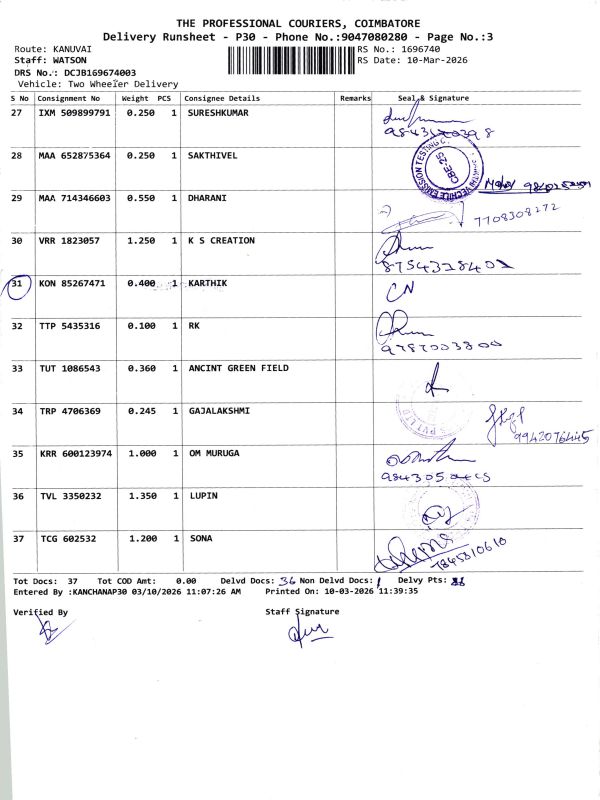 THE PROFESSIONAL COURIERS, COIMBATORE
Delivery Runsheet - P30 - Phone No.:9047080280 - Page No.:3
Route: KANUVAI RS No.: 1696740
Staff: WATSON RS Date: 10-Mar-2026
DRS No.: DCJB169674003
Vehicle: Two Wheeler Delivery
S No Consignment No Weight PCS Consignee Details Remarks Seal & Signature
27 IXM 509899791 0.250 1 SURESHKUMAR
28 MAA 652875364 0.250 1 SAKTHIVEL
EMISSION TESTING CBE-25
29 MAA 714346603 0.550 1 DHARANI 7708308272
30 VRR 1823057 1.250 1 K S CREATION
8754328402
31 KON 85267471 0.400 1 KARTHIK CN
32 TTP 5435316 0.100 1 RK
9787003800
33 TUT 1086543 0.360 1 ANCINT GREEN FIELD
34 TRP 4706369 0.245 1 GAJALAKSHMI
S PVT LTD
9942076445
35 KRR 600123974 1.000 1 OM MURUGA
36 TVL 3350232 1.350 1 LUPIN
37 TCG 602532 1.200 1 SONA
7845810610
Tot Docs: 37 Tot COD Amt: 0.00 Delvd Docs: 36 Non Delvd Docs: 1 Delvy Pts:
Entered By :KANCHANAP30 03/10/2026 11:07:26 AM Printed On: 10-03-2026 11:39:35
Verified By Staff Signature